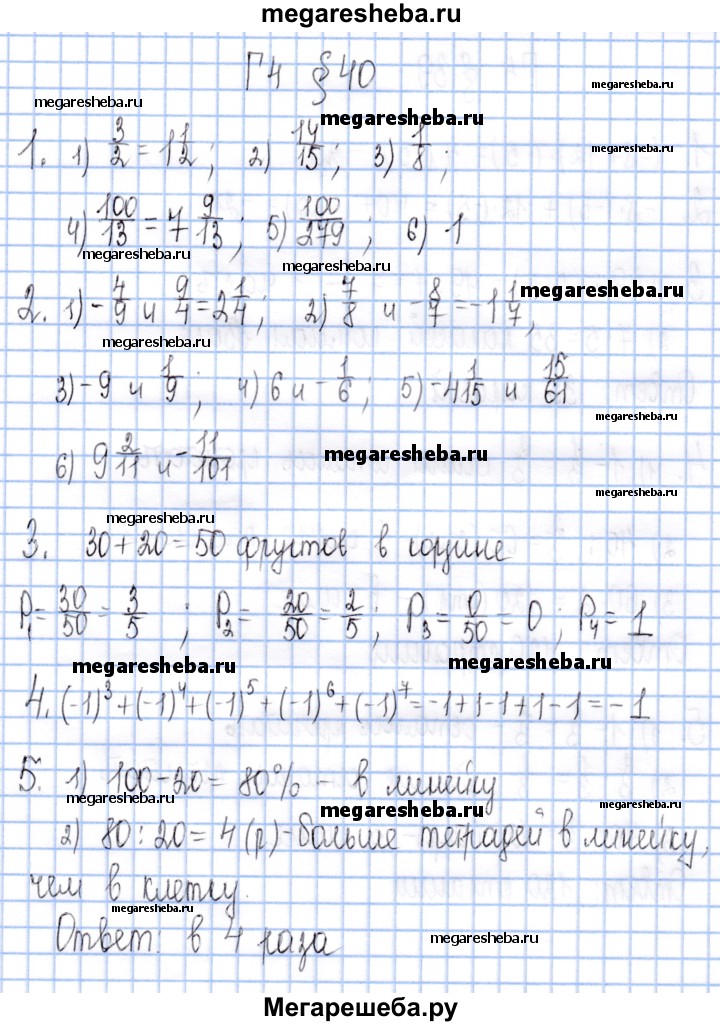 megaresheba.ru
Г4 §40
megaresheba.ru
megaresheba.ru
megaresheba.ru
1. 1) 3/2 = 1 1/2; 2) 14/15; 3) 1/8;
megaresheba.ru
4) 100/13 = 7 9/13; 5) 100/279; 6) -1
megaresheba.ru
megaresheba.ru
2. 1) -4/9 и 9/4 = 2 1/4; 2) 7/8 и -8/7 = -1 1/7,
megaresheba.ru
megaresheba.ru
3) -9 и 1/9; 4) 6 и -1/6; 5) -4 1/15 и 15/61
megaresheba.ru
6) 9 2/11 и -11/101
megaresheba.ru
megaresheba.ru
megaresheba.ru
3. 30+20=50 фруктов в корзине
P₁ = 30/50 = 3/5; P₂ = 20/50 = 2/5; P₃ = 0/50 = 0; P₄ = 1
megaresheba.ru
megaresheba.ru
4. (-1)³+(-1)⁴+(-1)⁵+(-1)⁶+(-1)⁷=-1+1-1+1-1=-1
5. 1) 100-20=80% - в линейку
megaresheba.ru
megaresheba.ru
megaresheba.ru
2) 80:20=4(р)-больше тетрадей в линейку,
чем в клетку.
megaresheba.ru
Ответ: в 4 раза
megaresheba.ru
Мегарешеба.ру